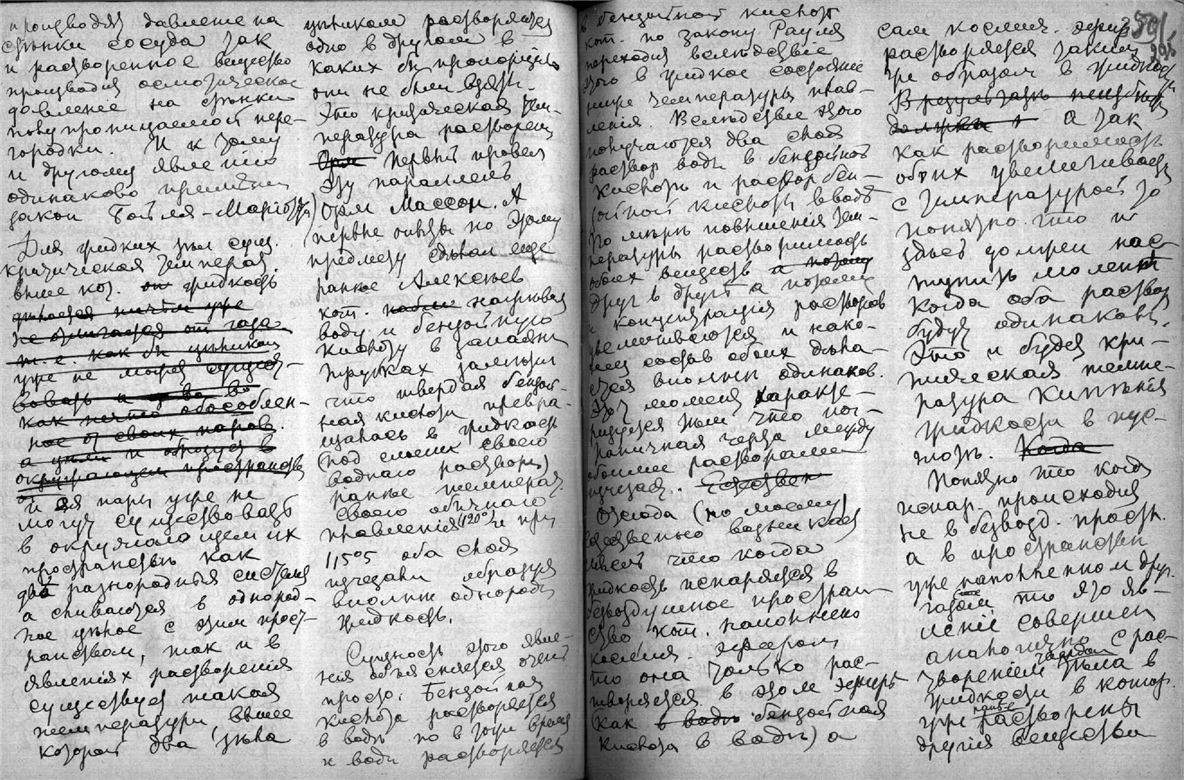 производя давленie на
стѣнки сосуда так
и растворенное вещество
производя осмотическое
давленiе на стѣнки
полупроницаемой пере-
городки. И к тому
и другому явленiю
одинаково
закон Бойля-Мариотта)
Для жидких тѣл сущ.
критическая температ.
выше кот. жидкость
ничѣм уже
не отличается от газа
т. е. как бы цѣликом
уже не может существо-
вовать
как нечто обособлен-
ное от своих паров.
а
окружающем пространствѣ
и ея пары уже не
могут существовать
в окружающем их
пространствѣ как
двѣ разнородныя системы
а сливаются в однород-
ное цѣлое с этим прост-
ранством, так и в
явленiях растворенiя
существует такая
температура, выше
которой два тѣла
цѣликом растворяются
одно в другом в
каких бы пропорцiях
они не были взяты.
Это критическая тем-
пература растворен.
первый провел
эту параллель
Орм Массон. А
первые опыты по этому
предмету сдѣлал еще
ранѣе Алексѣев
кот. нагрѣвая
воду и бензойную
кислоту в запаян.
трубках замѣтил
что твердая бензой-
ная кислота превра-
щалась в жидкость
(под слоем своего
воднаго раствора)
ранѣе температ.
своего обычнаго
плавленiя (120°) и при
115°5 оба слоя
изчезали образуя
вполнѣ однородн.
жидкость.
Сущность этого явле-
нiя объясняется очень
просто. Бензойная
кислота растворяется
в водѣ но в тоже время
и вода растворяется
в бензойной кислотѣ
кот. по закону Рауля
переходит вслѣдствiе
этого в жидкое состоянie
ниже температуры плав-
ленiя. Вслѣдствiе этого
получаются два слоя
раствор воды в бензойной
кислотѣ и раствор бен-
зойной кислоты в водѣ
По мѣрѣ повышенiя тем-
пературы растворимость
обоих веществ и потому
друг в другѣ а потому
и концентрацiя растворов
увеличиваются и нако-
нец состав обоих дѣла-
ется вполнѣ одинаков.
Этот момент характе-
ризуется тѣм что пог-
раничная черта между
обоими растворами
изчезает.
Отсюда (по моему)
естественно вытекает
мысль что когда
жидкость испаряется в
безвоздушное простран-
ство кот. наполнено
космич. эфиром
то она только рас-
творяется в этом эфирѣ
(как в водѣ бензойная
кислота в водѣ) а
сам космич. эфир
растворяется таким
же образом в жидкости
В результатѣ
должны А так
как растворимость
обоих увеличивается
с температурой то
понятно что и
здѣсь должен нас-
тупить момент
когда оба раствора
будут одинаковы.
Это и будет кри-
тическая темпе-
ратура кипѣнiя
жидкости в пус-
тотѣ. Когда
Понятно что когда
испар. происходит
не в безвозд. простр.
а в пространствѣ
уже наполненном друг.
газом то это яв-
ленiе совершен.
аналогично с рас-
творенiем твердаго тѣла в
жидкости в котор.
уже растворены
другiя вещества